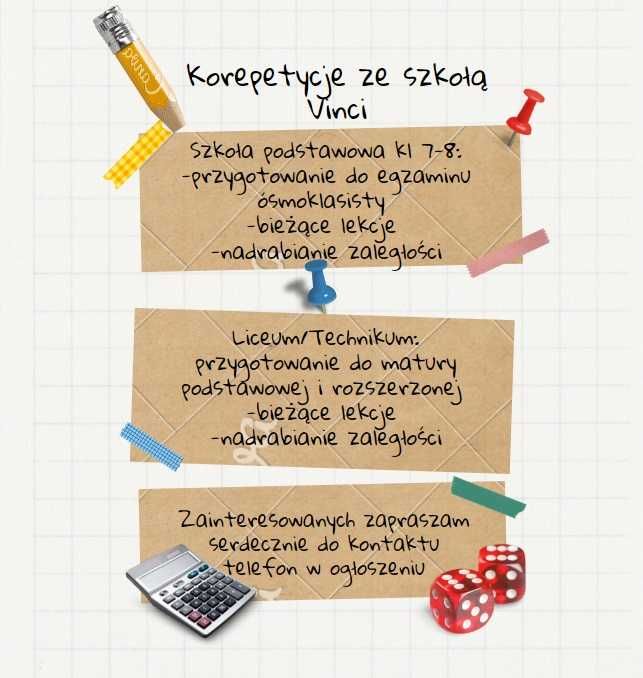 Korepetycje ze szkołą
Vinci
Szkoła podstawowa kl 7-8:
-przygotowanie do egzaminu
ósmoklasisty
-bieżące lekcje
-nadrabianie zaległości
Liceum/Technikum:
przygotowanie do matury
podstawowej i rozszerzonej
-bieżące lekcje
-nadrabianie zaległości
Zainteresowanych zapraszam
serdecznie do kontaktu
telefon w ogłoszeniu
Canva